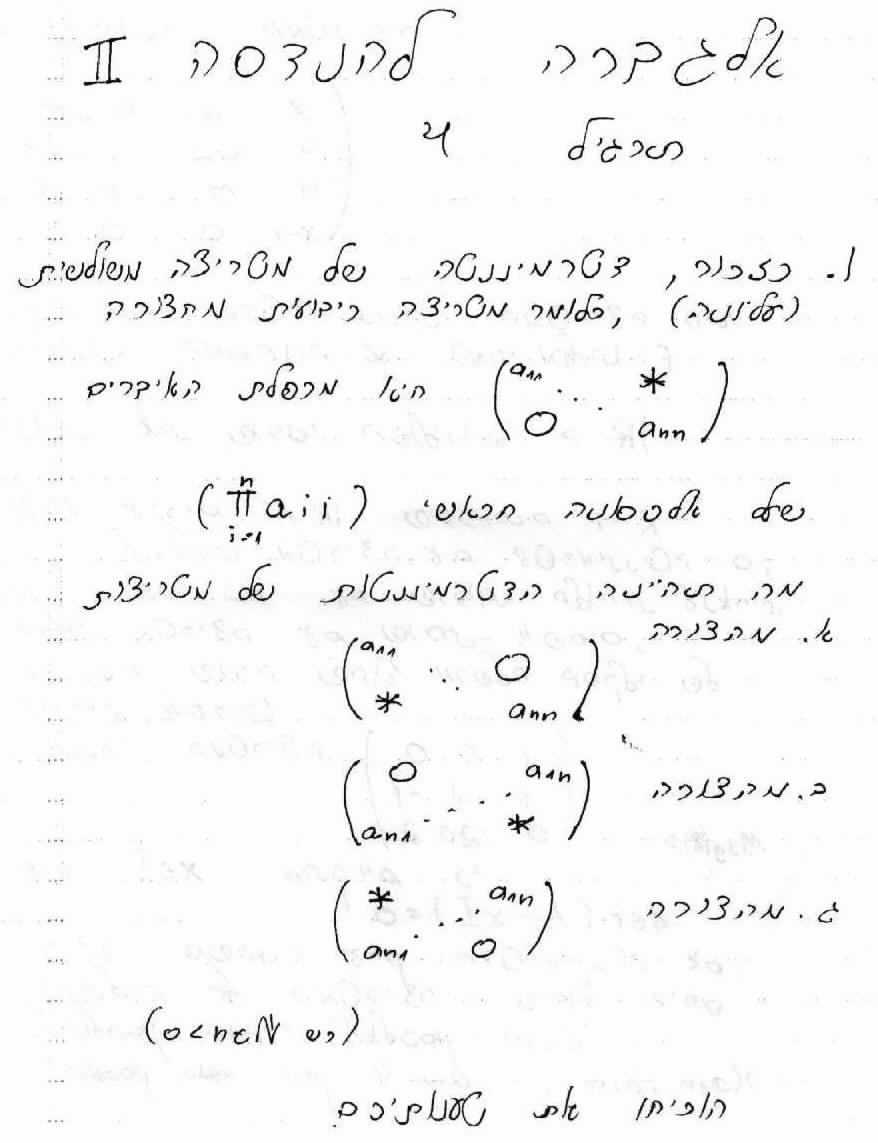 אלגברה להנדסה II
תרגיל 4
1. כזכור, דטרמיננטה של מטריצה משולשית
(עליונה), כלומר מטריצה ריבועית מהצורה
(a₁₁ ⋱ * 0 aₙₙ) היא מכפלת האיברים
של אלכסונה הראשי (∏ᵢ₌₁ⁿ aᵢᵢ)
מה תהיינה הדטרמיננטות של מטריצות
א. מהצורה (a₁₁ ⋱ 0 * aₙₙ)
ב. מהצורה (0 a₁ₙ ⋰ aₙ₁ *)
ג. מהצורה (* a₁ₙ ⋰ aₙ₁ 0)
הוכיחו את טענותיכם